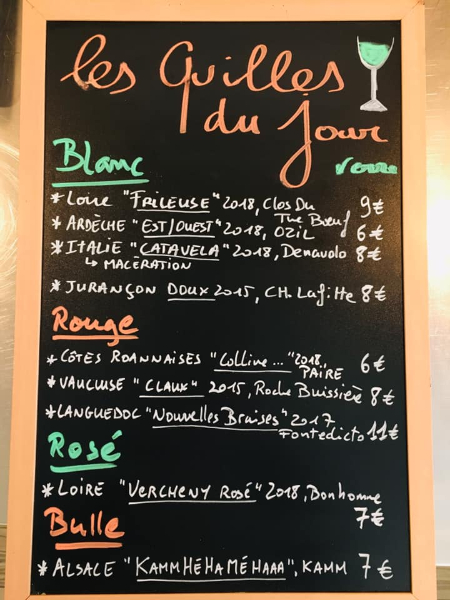 Les Quilles
du jour
Blanc
verre
* LOIRE "FRILEUSE" 2018, Clos Du
Tue Bœuf 9€
* ARDÈCHE "EST/OUEST" 2018, OZIL 6€
* ITALIE "CATAVELA" 2018, Denavolo 8€
↳ MACÉRATION
* JURANÇON DOUX 2015, CH. Lafitte 8€
Rouge
* CÔTES ROANNAISES "Colline..." 2018,
PAIRE 6€
* VAUCLUSE "CLAUX" 2015, Roche Buissière 8€
* LANGUEDOC "Nouvelles Braises" 2017
Fontedicto 11€
Rosé
* LOIRE "VERCHENY ROSÉ" 2018, Bonhomme
7€
Bulle
* ALSACE "KAMMHEHAMÉHAAA", KAMM 7€